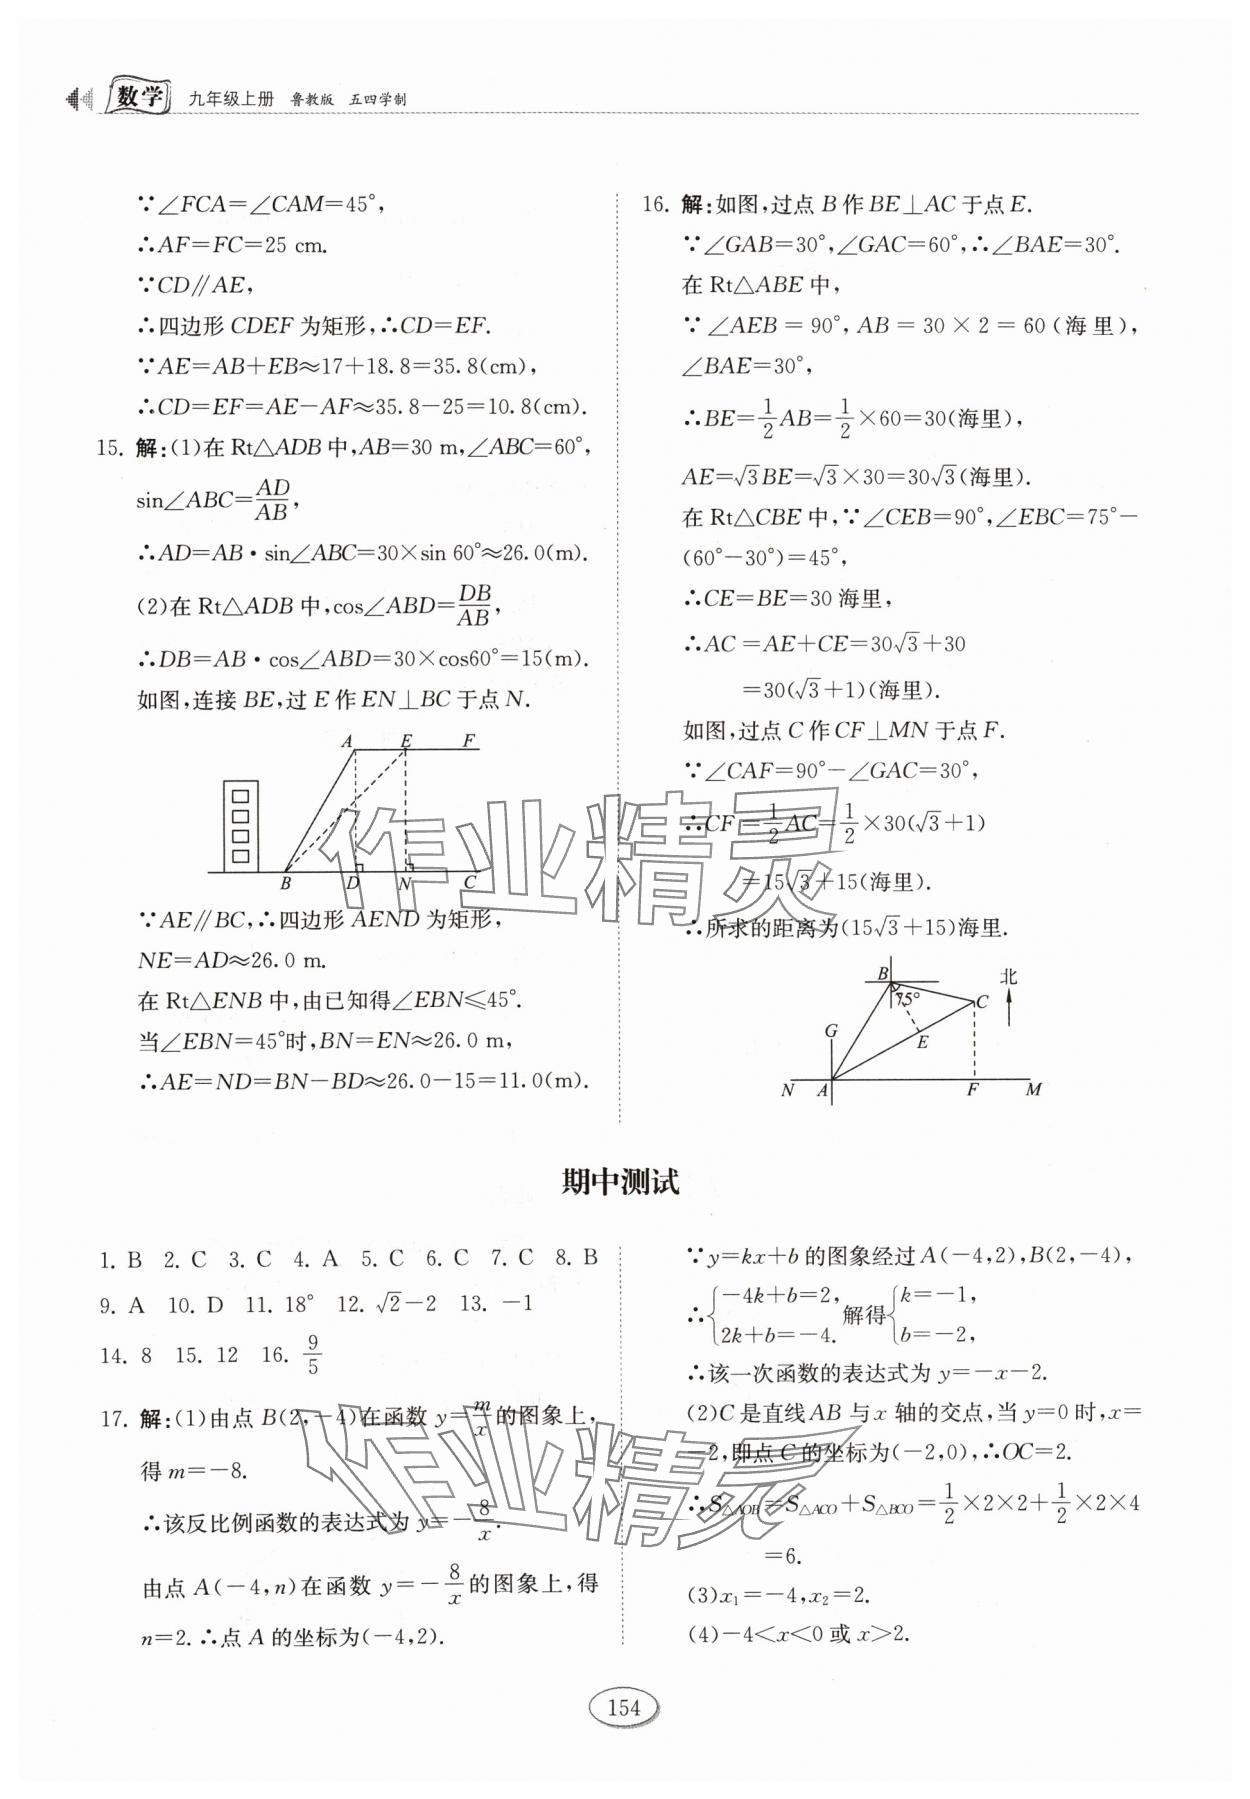 数学 九年级上册 鲁教版 五四学制
∵∠FCA=∠CAM=45°,
∴AF=FC=25 cm.
∵CD∥AE,
∴四边形 CDEF 为矩形,∴CD=EF.
∵AE=AB+EB≈17+18.8=35.8(cm),
∴CD=EF=AE−AF≈35.8−25=10.8(cm).
15. 解:(1)在 Rt△ADB 中,AB=30 m,∠ABC=60°,
sin∠ABC=AD/AB,
∴AD=AB·sin∠ABC=30×sin 60°≈26.0(m).
(2)在 Rt△ADB 中,cos∠ABD=DB/AB,
∴DB=AB·cos∠ABD=30×cos60°=15(m).
如图,连接 BE,过 E 作 EN⊥BC 于点 N.
A E F
B D N C
∵AE∥BC,∴四边形 AEND 为矩形,
NE=AD≈26.0 m.
在 Rt△ENB 中,由已知得∠EBN≤45°.
当∠EBN=45°时,BN=EN≈26.0 m,
∴AE=ND=BN−BD≈26.0−15=11.0(m).
16. 解:如图,过点 B 作 BE⊥AC 于点 E.
∵∠GAB=30°,∠GAC=60°,∴∠BAE=30°.
在 Rt△ABE 中,
∵∠AEB=90°,AB=30×2=60(海里),
∠BAE=30°,
∴BE=1/2AB=1/2×60=30(海里),
AE=√3BE=√3×30=30√3(海里).
在 Rt△CBE 中,∵∠CEB=90°,∠EBC=75°−
(60°−30°)=45°,
∴CE=BE=30 海里,
∴AC=AE+CE=30√3+30
=30(√3+1)(海里).
如图,过点 C 作 CF⊥MN 于点 F.
∵∠CAF=90°−∠GAC=30°,
∴CF=1/2AC=1/2×30(√3+1)
=15√3+15(海里).
∴所求的距离为(15√3+15)海里.
B 北
75° C
G
E
N A F M
作业精灵
期中测试
1. B 2. C 3. C 4. A 5. C 6. C 7. C 8. B
9. A 10. D 11. 18° 12. √2−2 13. −1
14. 8 15. 12 16. 9/5
17. 解:(1)由点 B(2,−4)在函数 y=m/x的图象上,
得 m=−8.
∴该反比例函数的表达式为 y=−8/x.
由点 A(−4,n)在函数 y=−8/x的图象上,得
n=2.∴点 A 的坐标为(−4,2).
∵y=kx+b 的图象经过 A(−4,2),B(2,−4),
∴{−4k+b=2, 2k+b=−4. 解得{k=−1, b=−2,
∴该一次函数的表达式为 y=−x−2.
(2)C 是直线 AB 与 x 轴的交点,当 y=0 时,x=
−2,即点 C 的坐标为(−2,0),∴OC=2.
∴S△AOB=S△ACO+S△BCO=1/2×2×2+1/2×2×4
=6.
(3)x₁=−4,x₂=2.
(4)−4<x<0 或 x>2.
作业精灵
154